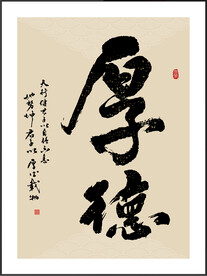 厚德
天行健君子以自强不息
地势坤君子以厚德载物